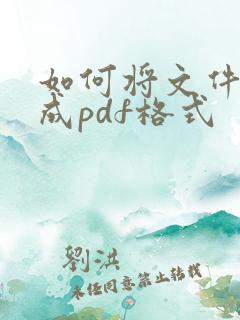 如何将文件
成pdf格式
劉洪
未经同意禁止转载